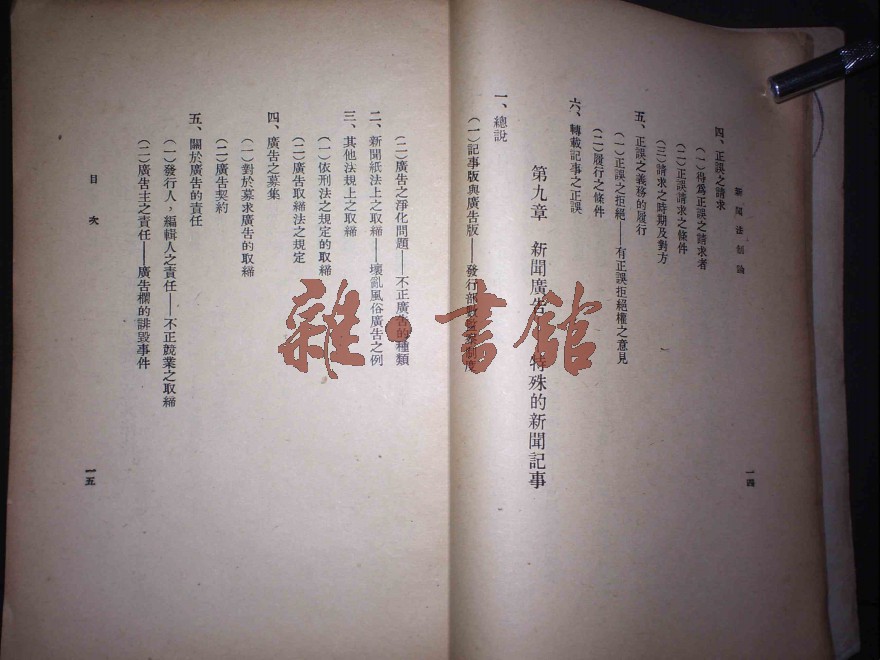 新聞法制論
四、正誤之請求
（一）得為正誤之請求者
（二）正誤請求之條件
（三）請求之時期及對方
五、正誤之義務的履行
（一）正誤之拒絕——有正誤拒絕權之意見
（二）履行之條件
六、轉載記事之正誤
第九章　新聞廣告　特殊的新聞記事
一、總說
（一）記事版與廣告版——發行部數 制度
一四
（二）廣告之淨化問題——不正廣告的種類
二、新聞紙法上之取締——壞亂風俗廣告之例
三、其他法規上之取締
（一）依刑法之規定的取締
（二）廣告取締法之規定
四、廣告之募集
（一）對於募求廣告的取締
（二）廣告契約
五、關於廣告的責任
（一）發行人，編輯人之責任——不正競業之取締
（二）廣告主之責任——廣告欄的誹毀事件
目次
一五
雜·書館